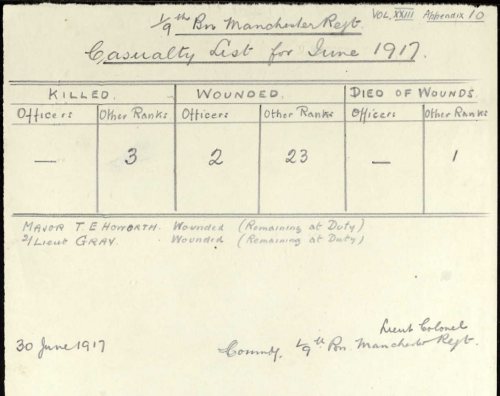 1/9th Bn Manchester Regt. VOL. XXIII Appendix 10
Casualty List for June 1917.
KILLED. WOUNDED. DIED OF WOUNDS.
Officers Other Ranks Officers Other Ranks Officers Other Ranks
— 3 2 23 — 1
MAJOR T. E HOWORTH. Wounded (Remaining at Duty)
2/Lieut GRAY. Wounded (Remaining at Duty)
Lieut Colonel
30 June 1917 Commdg. 1/9th Bn Manchester Regt.